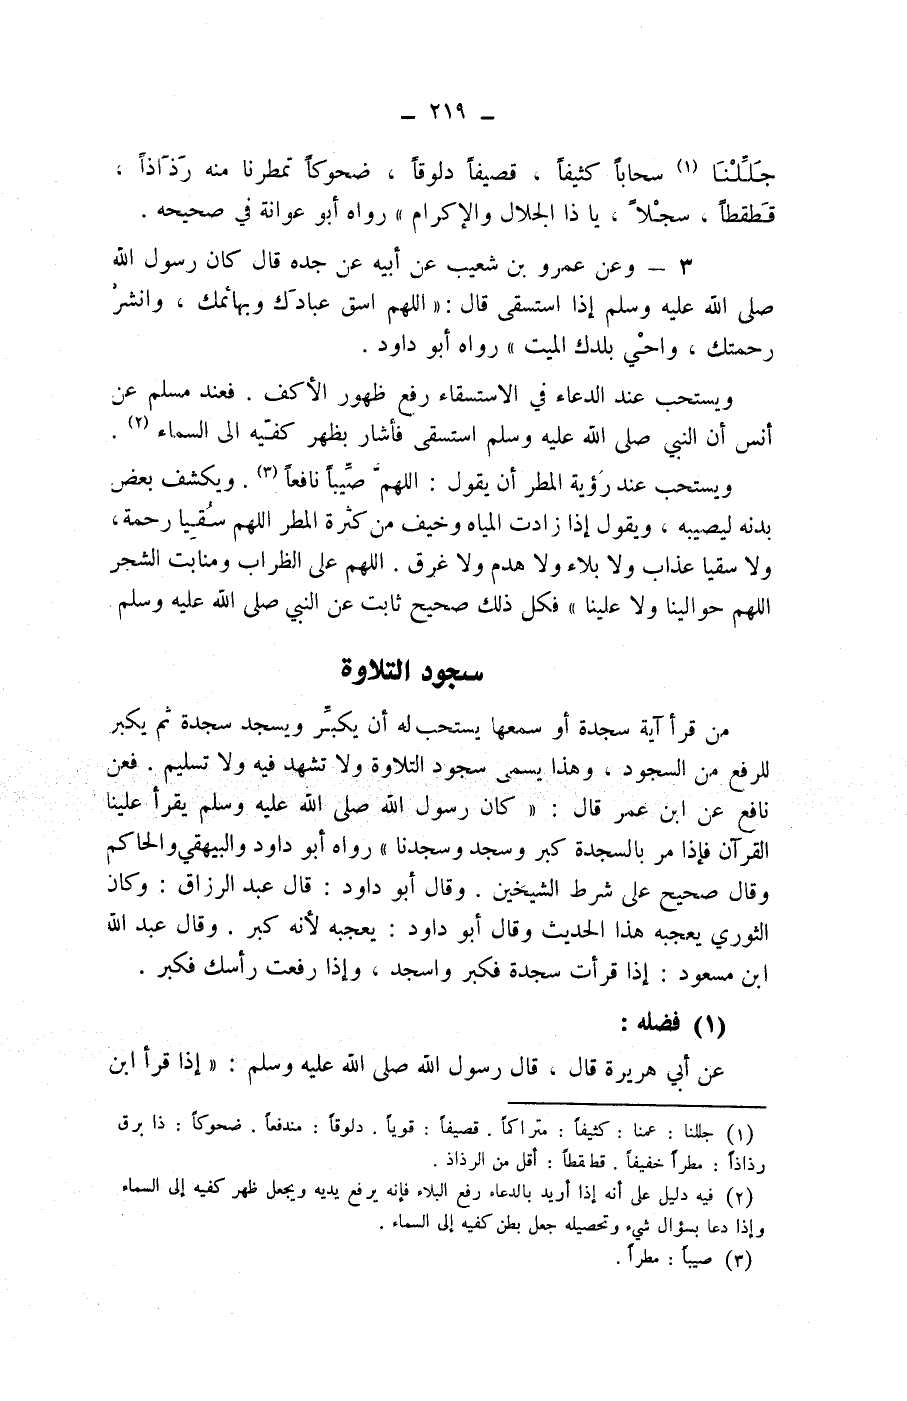 ـ ٢١٩ ـ
جَلِّلْنَا (١) سحاباً كثيفاً ، قصيفاً دلوقاً ، ضحوكاً تمطرنا منه رَذَاذاً ،
قَطقطاً ، سجْلاً ، يا ذا الجلال والإكرام » رواه أبو عوانة في صحيحه .
٣ ـ وعن عمرو بن شعيب عن أبيه عن جده قال كان رسول الله
صلى الله عليه وسلم إذا استسقى قال : « اللهم اسق عبادَك وبهائمك ، وانشرْ
رحمتك ، واحْي بلدك الميت » رواه أبو داود .
ويستحب عند الدعاء في الاستسقاء رفع ظهور الأكف . فعند مسلم عن
أنس أن النبي صلى الله عليه وسلم استسقى فأشار بظهر كفّيه الى السماء (٢) .
ويستحب عند رَؤية المطر أن يقول : اللهمَّ صَيِّباً نافعاً (٣) . ويكشف بعض
بدنه ليصيبه ، ويقول إذا زادت المياه وخيف من كثرة المطر اللهم سُقيا رحمة ،
ولا سقيا عذاب ولا بلاء ولا هدم ولا غرق . اللهم على الظراب ومنابت الشجر
اللهم حوالينا ولا علينا » فكل ذلك صحيح ثابت عن النبي صلى الله عليه وسلم
سجود التلاوة
من قرأ آية سجدة أو سمعها يستحب له أن يكبِّر ويسجد سجدة ثم يكبر
للرفع من السجود ، وهذا يسمى سجود التلاوة ولا تشهد فيه ولا تسليم . فعن
نافع عن ابن عمر قال : « كان رسول الله صلى الله عليه وسلم يقرأ علينا
القرآن فإذا مر بالسجدة كبر وسجد وسجدنا » رواه أبو داود والبيهقي والحاكم
وقال صحيح على شرط الشيخين . وقال أبو داود : قال عبد الرزاق : وكان
الثوري يعجبه هذا الحديث وقال أبو داود : يعجبه لأنه كبر . وقال عبد الله
ابن مسعود : إذا قرأت سجدة فكبر واسجد ، وإذا رفعت رأسك فكبر .
(١) فضله :
عن أبي هريرة قال ، قال رسول الله صلى الله عليه وسلم : « إذا قرأ ابن
(١) جللنا : عمنا : كثيفاً : متراكماً . قصيفاً : قوياً . دلوقاً : مندفعاً . ضحوكاً : ذا برق
رذاذاً : مطراً خفيفاً . قطقطاً : أقل من الرذاذ .
(٢) فيه دليل على أنه إذا أريد بالدعاء رفع البلاء فإنه يرفع يديه ويجعل ظهر كفيه إلى السماء
وإذا دعا بسؤال شيء وتحصيله جعل بطن كفيه إلى السماء .
(٣) صيباً : مطراً .